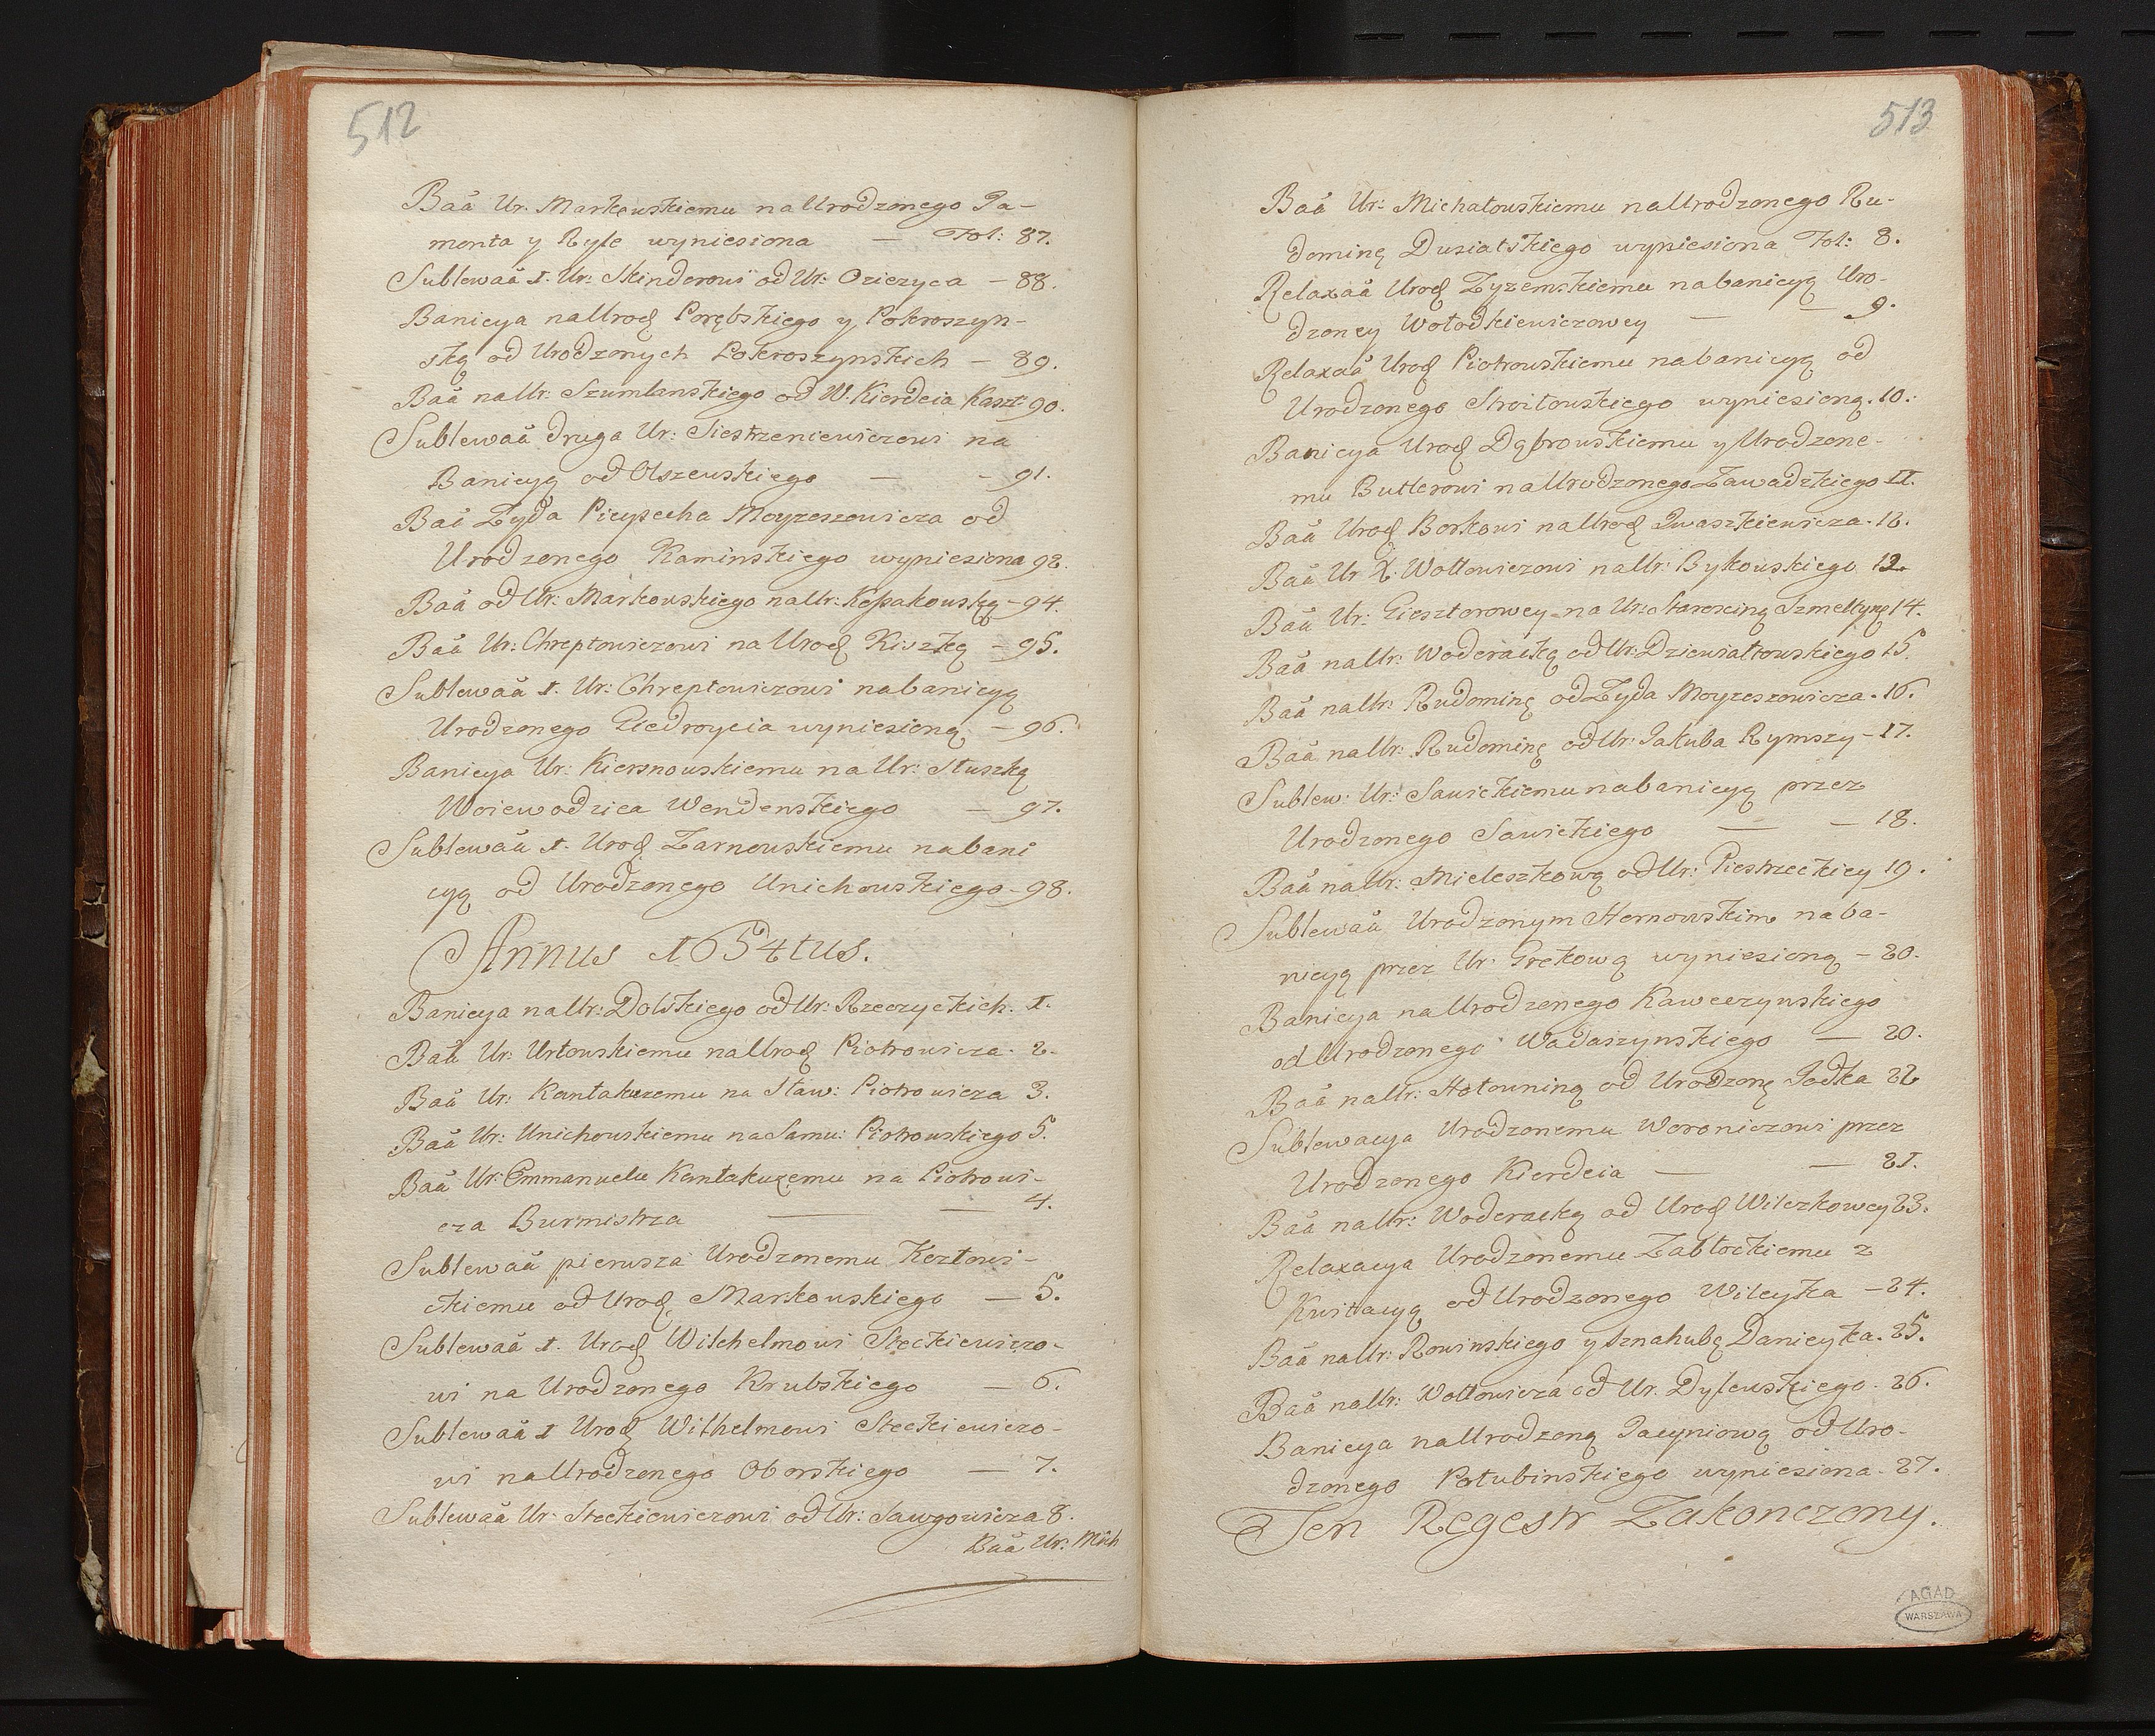 512
Baa̋ Ur. Markowskiemu na Urodzonego Pa-
monta y Ryłe wyniesiona — Fol: 87.
Sublewaa̋ 1. Ur: Skinderowi od Ur: Ozieryca — 88.
Banicya na Urod Porębskiego y Pokroszyn-
ską od Urodzonych Pokroszynskich — 89.
Baa̋ na Ur: Szumlanskiego od W. Kierdeia Kaszt: 90.
Sublewaa̋ druga Ur: Siestrzeniewiczowi na
Banicyą od Olszewskiego — - 91.
Baa̋ Zyda Picypecha Moyzeszowicza od
Urodzonego Kaminskiego wyniesiona 92.
Baa̋ od Ur: Markowskiego na Ur: Kossakowską — 94.
Baa̋ Ur: Chreptowiczowi na Urod Kiszkę — 95.
Sublewaa̋ 1. Ur: Chreptowiczowi na banicyą
Urodzonego Giedroycia wyniesioną — 96.
Banicya Ur: Kiersnowskiemu na Ur: Słuszkę
Woiewodzica Wendenskiego — 97.
Sublewaa̋ 1. Urod Zarnowskiemu na bani
cyą od Urodzonego Unichowskiego — 98.
Annus 1654tus.
Banicya na Ur: Dolskiego od Ur: Rzeczyckich. 1.
Baa̋ Ur: Urtowskiemu na Urod Piotrowicza. 2.
Baa̋ Ur: Kantakuzemu na Sław: Piotrowicza 3.
Baa̋ Ur: Unichowskiemu na Samu: Piotrowskiego 5.
Baa̋ Ur: Emmanuelu Kantakuzemu na Piotrowi-
cza Burmistrza — — 4.
Sublewaa̋ pierwsza Urodzonemu Kozłowi-
ckiemu od Urod Markowskiego — 5.
Sublewaa̋ 1. Urod Wilchelmowi Steckiewiczo-
wi na Urodzonego Krubskiego — 6.
Sublewaa̋ 1 Urod Wilhelmowi Steckiewiczo-
wi na Urodzonego Oborskiego — 7.
Sublewaa̋ Ur: Steckiewiczowi od Ur: Sawgowicza 8.
Baa̋ Ur: Mich
513
Baa̋ Ur: Michałowskiemu na Urodzonego Ru-
dominę Dusiatskiego wyniesiona Fol: 8.
Relaxaa̋ Urod Zyzemskiemu na banicyą Uro-
dzoney Wołodkiewiczowey — — 9.
Relaxaa̋ Urod Piotrowskiemu na banicyą od
Urodzonego Stroiłowskiego wyniesioną. 10.
Banicya Urod Dąbrowskiemu y Urodzone-
mu Butlerowi na Urodzonego Zawadzkiego 11.
Baa̋ Urod Borkowi na Urod Iwaszkiewicza. 12.
Baa̋ Ur X. Wołłowiczowi na Ur: Bykowskiego 12.
Baa̋ Ur: Giesztorowey na Ur: Starościnę Szmeltynę 14.
Baa̋ na Ur: Woderacką od Ur: Dziewiałtowskiego 15.
Baa̋ na Ur: Rudominę od Zyda Moyzeszowicza. 16.
Baa̋ na Ur: Rudominę od Ur: Jakuba Rymszy — 17.
Sublew: Ur: Sawickiemu na banicyą przez
Urodzonego Sawickiego — — 18.
Baa̋ na Ur: Mieleszkową od Ur: Piestrzeckiey 19.
Sublewaa̋ Urodzonym Hornowskim na ba-
nicyą przez Ur: Grekową wyniesioną — 20.
Banicya na Urodzonego Kaweczynskiego
od Urodzonego Wadaszynskiego — 20.
Baa̋ na Ur: Hołowninę od Urodzonę Jodka 22
Sublewacya Urodzonemu Woroniczowi przez
Urodzonego Kierdeia — — 21.
Baa̋ na Ur: Woderacką od Urod Wilczkowey 23.
Relaxacya Urodzonemu Zabłockiemu z
Kwitacyą od Urodzonego Wilczka — 24.
Baa̋ na Ur: Rowinskiego y Hnahubę Daniczka. 25.
Baa̋ na Ur: Wołłowicza od Ur. Dylewskiego. 26.
Banicya na Urodzoną Jacyniową od Uro-
dzonego Połubinskiego wyniesiona. 27.
Ten Regestr Zakonczony.
AGAD
WARSZAWA